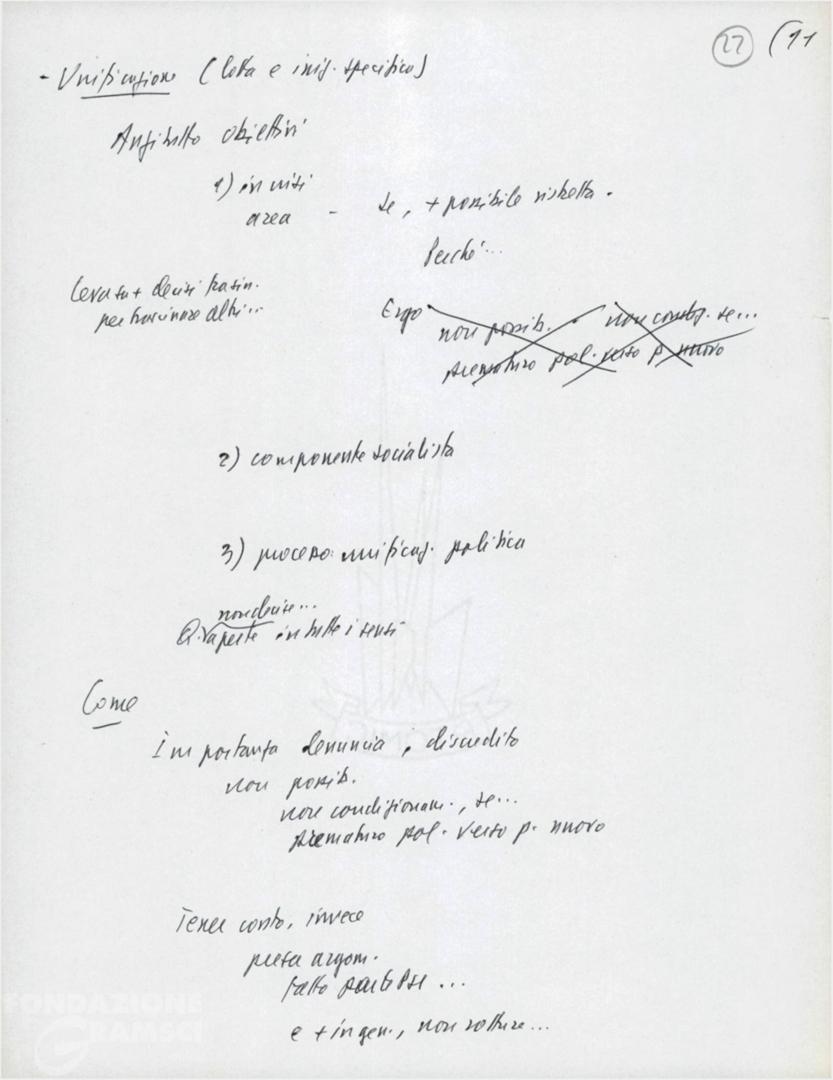 27 (11
- Unificazione (lotta e iniz. specifico)
Anzitutto obiettivi
1) in usi
area - se, + possibile ristretta.
Perché...
Leva su + decisi trasin.
per trascinare altri...
Ergo non possib. non condiz. se...
prematuro pol. verso p. nuovo
2) componente socialista
3) processo unificaz. politica
non decise...
aperte in tutti i sensi
Come
Importanza denuncia, discredito
non possib.
non condizionam., se...
prematuro pol. verso p. nuovo
Tener conto, invece
presa argom.
fatto
e + in gen., non rotture...
FONDAZIONE
GRAMSCI